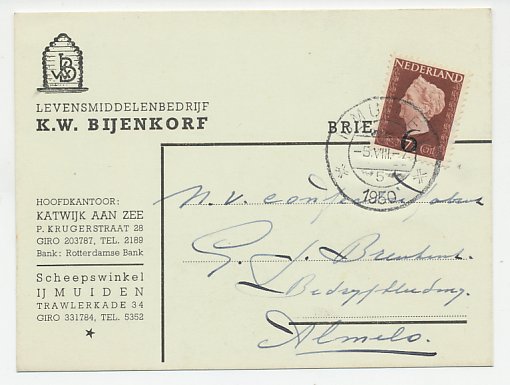 LEVENSMIDDELENBEDRIJF
K.W. BIJENKORF
BRIE
NEDERLAND
6
5.VIII.
5
1950
HOOFDKANTOOR:
KATWIJK AAN ZEE
P. KRUGERSTRAAT 28
GIRO 203787, TEL. 2189
Bank: Rotterdamse Bank
Scheepswinkel
IJMUIDEN
TRAWLERKADE 34
GIRO 331784, TEL. 5352
n.v.
G. J.
Almelo.